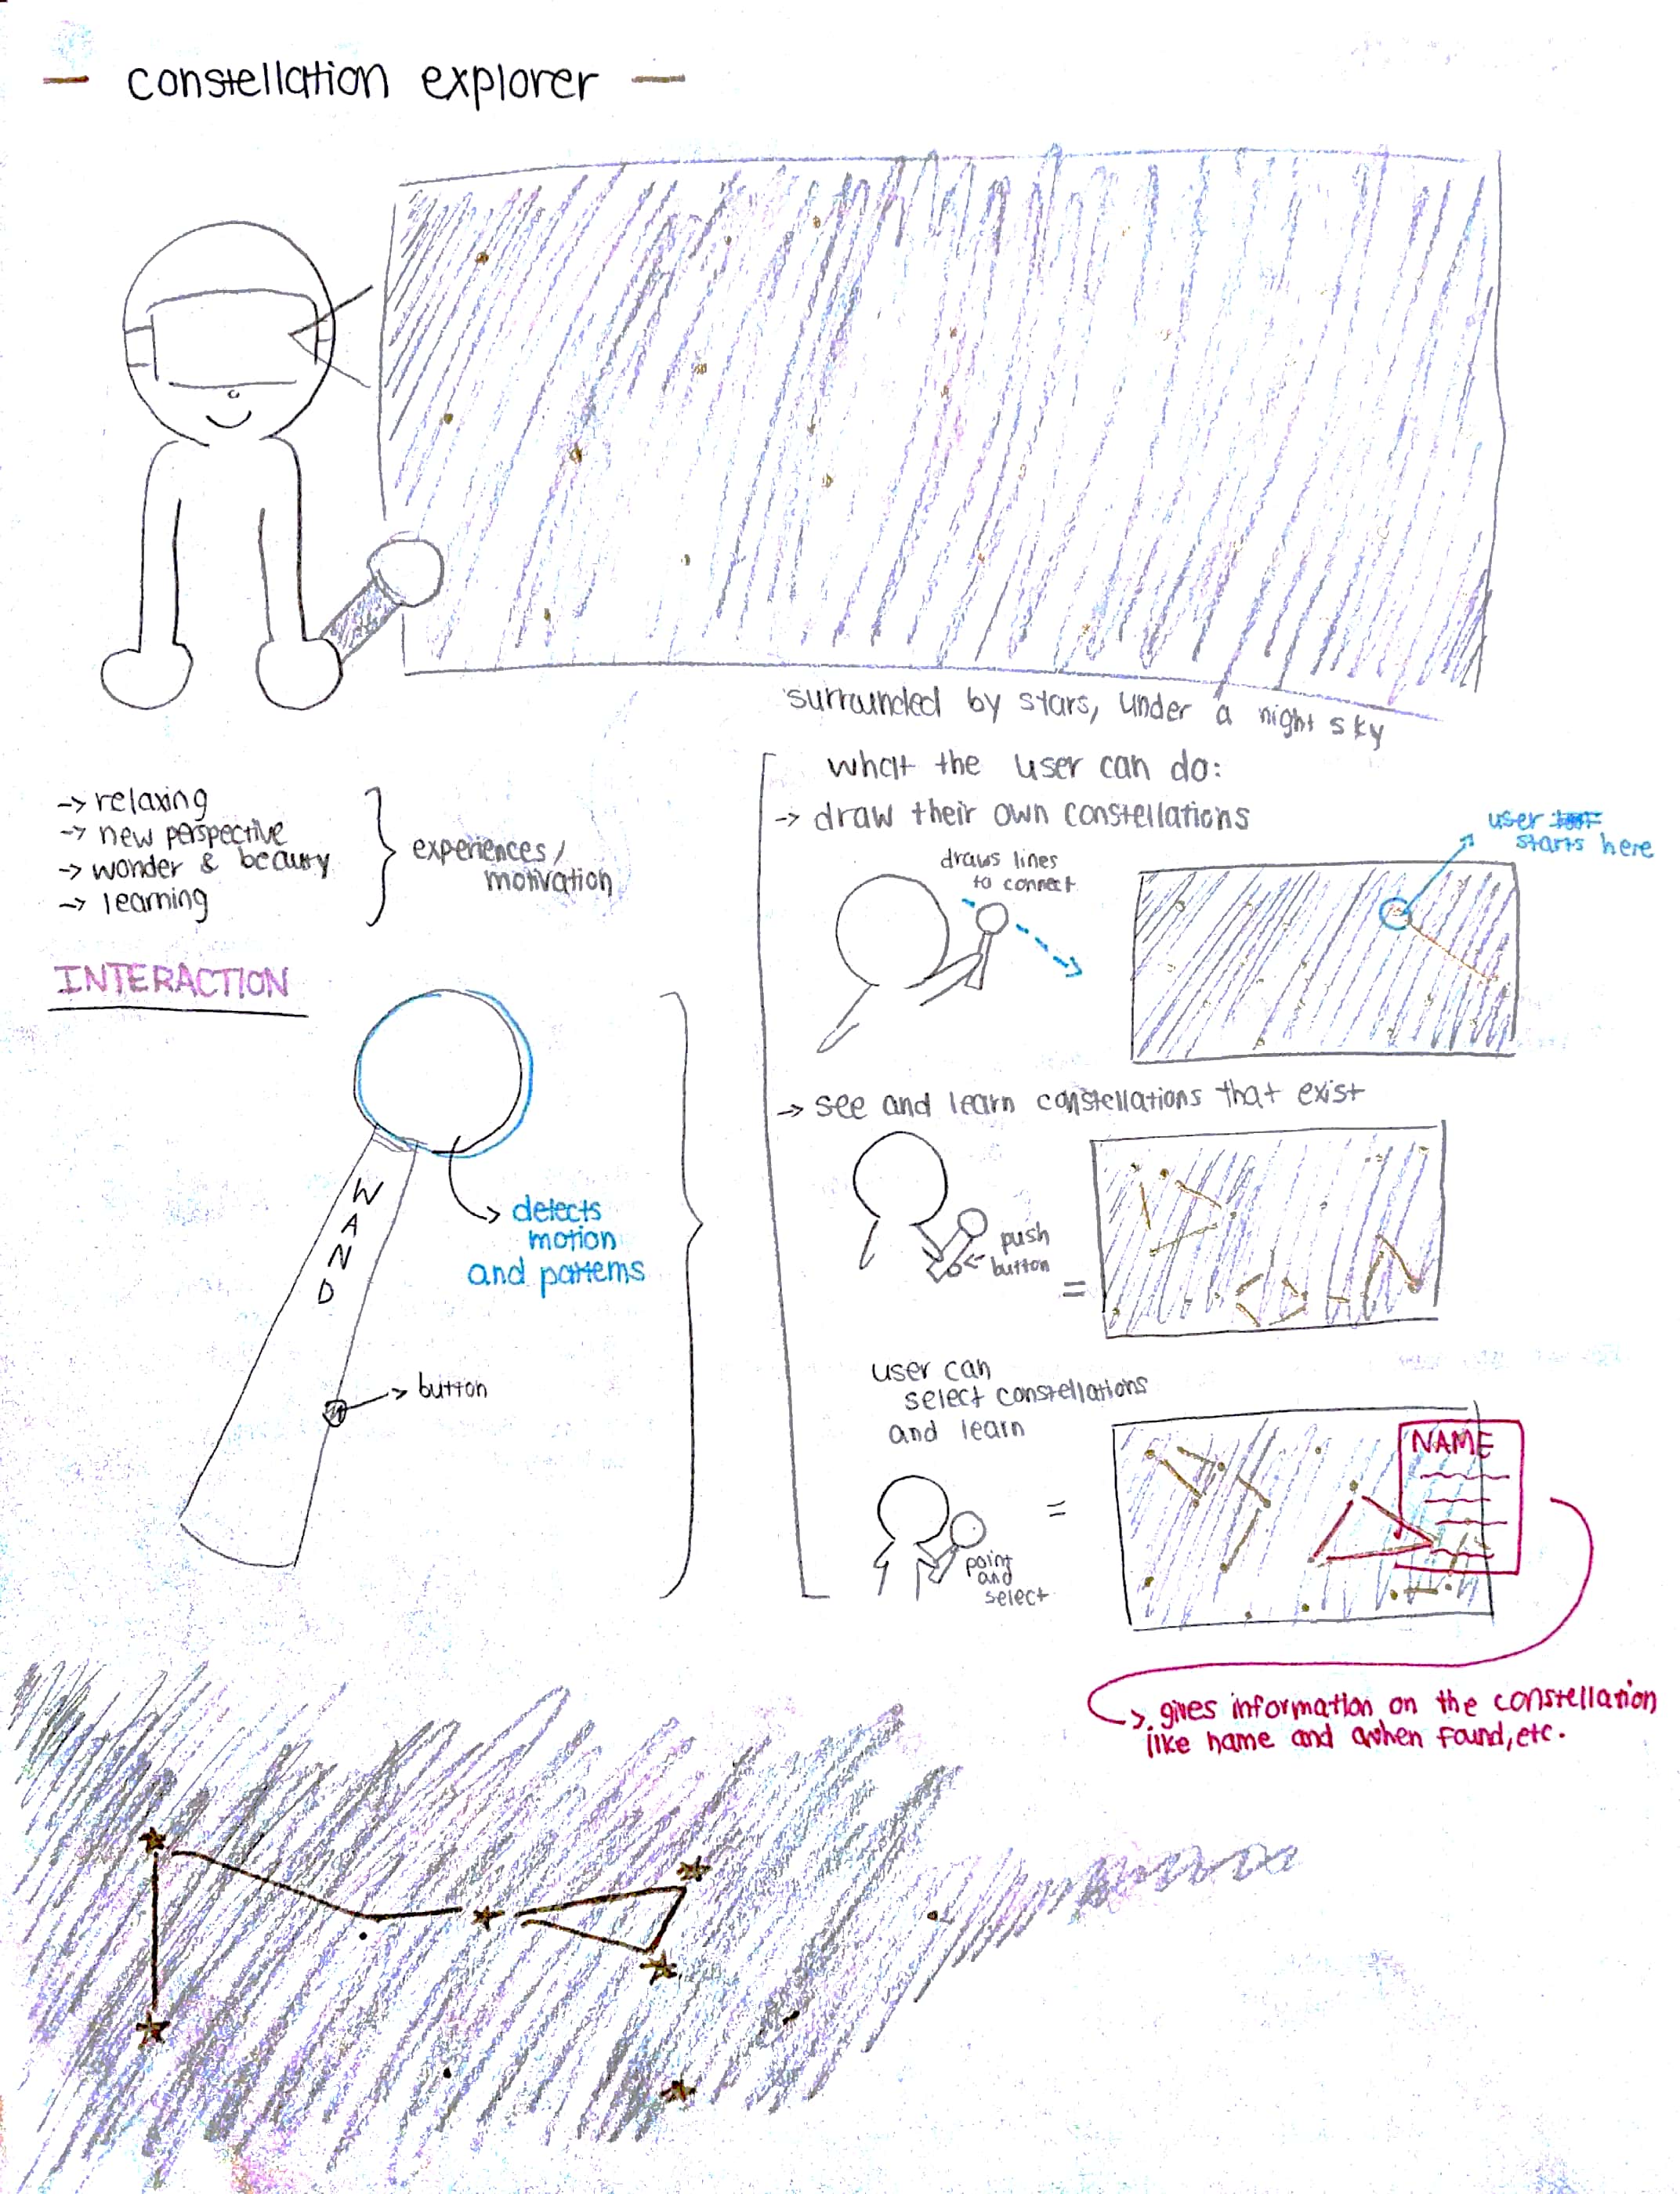 — constellation explorer —
surrounded by stars, under a night sky
-> relaxing
-> new perspective
-> wonder & beauty
-> learning
experiences/
motivation
INTERACTION
WAND
detects
motion
and patterns
-> button
what the user can do:
-> draw their own constellations
draws lines
to connect
user
starts here
-> see and learn constellations that exist
push
button
=
user can
select constellations
and learn
point
and
select
=
NAME
gives information on the constellation
like name and when found, etc.